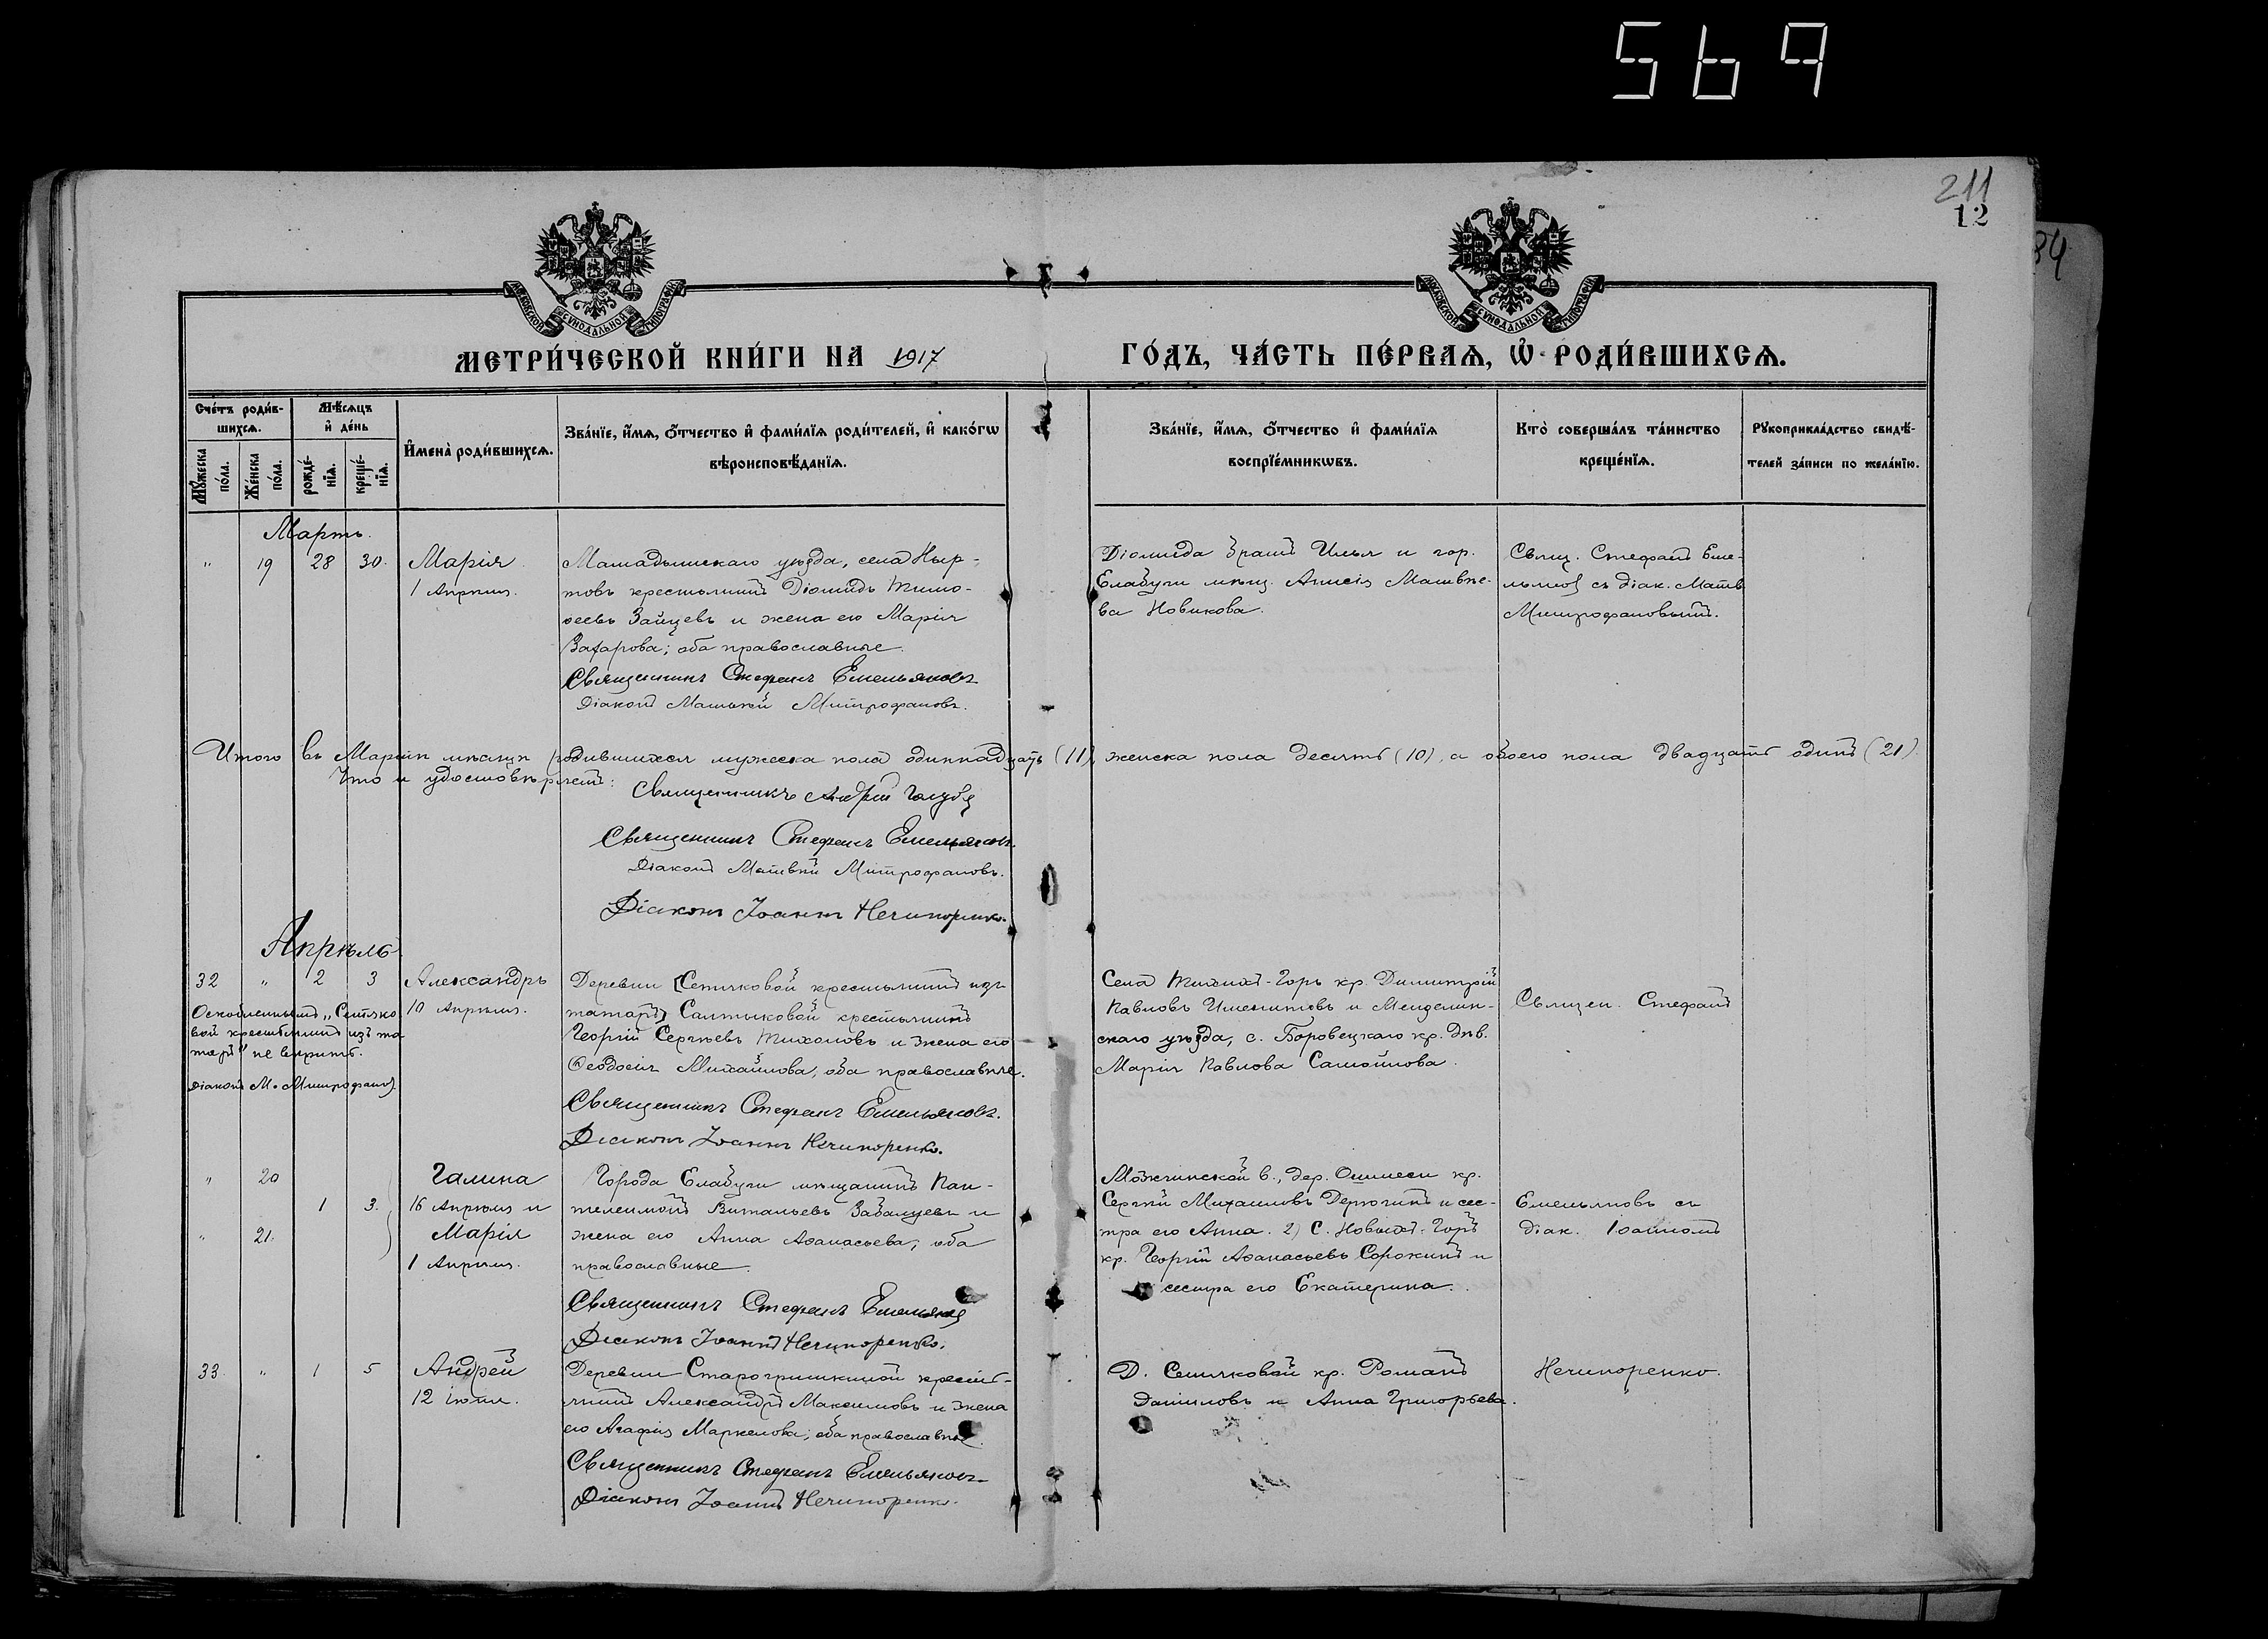 569
211
12
34
МОСКОВСКОЙ СѴНОДАЛЬНОЙ ТИПОГРАФІИ
МОСКОВСКОЙ СѴНОДАЛЬНОЙ ТИПОГРАФІИ
МЕТРИ́ЧЕСКОЙ КНИ́ГИ НА 1917 ГО́ДЪ, ЧА́СТЬ ПЕ́РВАѦ, Ѡ҆ РОДИ́ВШИХСѦ.
Сче́тъ роди́в-
шихсѧ.
Мѣ́сѧцъ
и҆ де́нь
Мꙋ́жеска
по́ла.
Же́нска
по́ла.
рожде́-
нїѧ.
креще́-
нїѧ.
И҆мена̀ роди́вшихсѧ.
Зва́нїе, и҆́мѧ, ѻ҆́тчество и҆ фами́лїѧ роди́телей, и҆ како́гѡ
вѣроисповѣ́данїѧ.
Зва́нїе, и҆́мѧ, ѻ҆́тчество и҆ фами́лїѧ
воспрїе́мникѡвъ.
Кто̀ соверша́лъ та́инство
креще́нїѧ.
Рꙋкоприкла́дство свидѣ́-
телей за́писи по жела́нїю.
Мартъ.
" 19 28 30. Марія
1 Апрѣля.
Мамадышскаго уѣзда, села Ныр-
товъ крестьянинъ Діомидъ Тимо-
ѳеевъ Зайцевъ и жена его Марія
Захарова; оба православные.
Священникъ Стефанъ Емельяновъ
Діаконъ Матвѣй Митрофановъ.
Діомида братъ Илья и гор.
Елабуги мѣщ. Анисія Матвѣе-
ва Новикова.
Свящ. Стефанъ Еме-
льяновъ съ діак. Матв.
Митрофановымъ.
Итого въ Мартѣ мѣсяцѣ родившихся мужеска пола одиннадцать (11), женска пола десять (10), а обоего пола двадцать одинъ (21).
Что и удостовѣряемъ:
Священникъ Андрей
Священникъ Стефанъ Емельяновъ.
Діаконъ Матвѣй Митрофановъ.
Діаконъ Іоаннъ Нечипоренко.
Апрѣль
32 " 2 3 Александръ
10 Апрѣля.
Оскобленнымъ „Сетяко-
вой крестьянинъ изъ та-
таръ" не вѣрить.
Діаконъ М. Митрофановъ
Деревни [Сетяковой крестьянинъ изъ
татаръ] Салтыковой крестьянинъ
Георгій Сергѣевъ Тихоновъ и жена его
Ѳеодосія Михайлова, оба православные.
Священникъ Стефанъ Емельяновъ.
Діаконъ Іоаннъ Нечипоренко.
Села Тихихъ-Горъ кр. Димитрій
Павловъ Именитовъ и Мензелин-
скаго уѣзда, с. Боровецкаго кр. дѣв.
Марія Павлова Самойлова.
Священ. Стефанъ
" 20 Галина
1 3. 16 Апрѣля и
" 21. Марія
1 Апрѣля.
Города Елабуги мѣщанинъ Пан-
телеимонъ Витальевъ Забалуевъ и
жена его Анна Аѳанасьева; оба
православные.
Священникъ Стефанъ Емельяновъ
Діаконъ Іоаннъ Нечипоренко.
Можгинской в., дер. кр.
Сергѣй Михаиловъ Дерюгинъ и сес-
тра его Анна. 2) С. Новыхъ-Горъ
кр. Георгій Аѳанасьевъ Сорокинъ и
сестра его Екатерина.
Емельяновъ съ
діак. Іоанномъ
33. " 1 5 Андрей
12 іюля.
Деревни Старогришкиной кресть-
янинъ Александръ Максимовъ и жена
его Агафія Маркелова; оба православные.
Священникъ Стефанъ Емельяновъ
Діаконъ Іоаннъ Нечипоренко.
Д. Сетяковой кр. Романъ
Даниловъ и Анна Григорьева.
Нечипоренко.